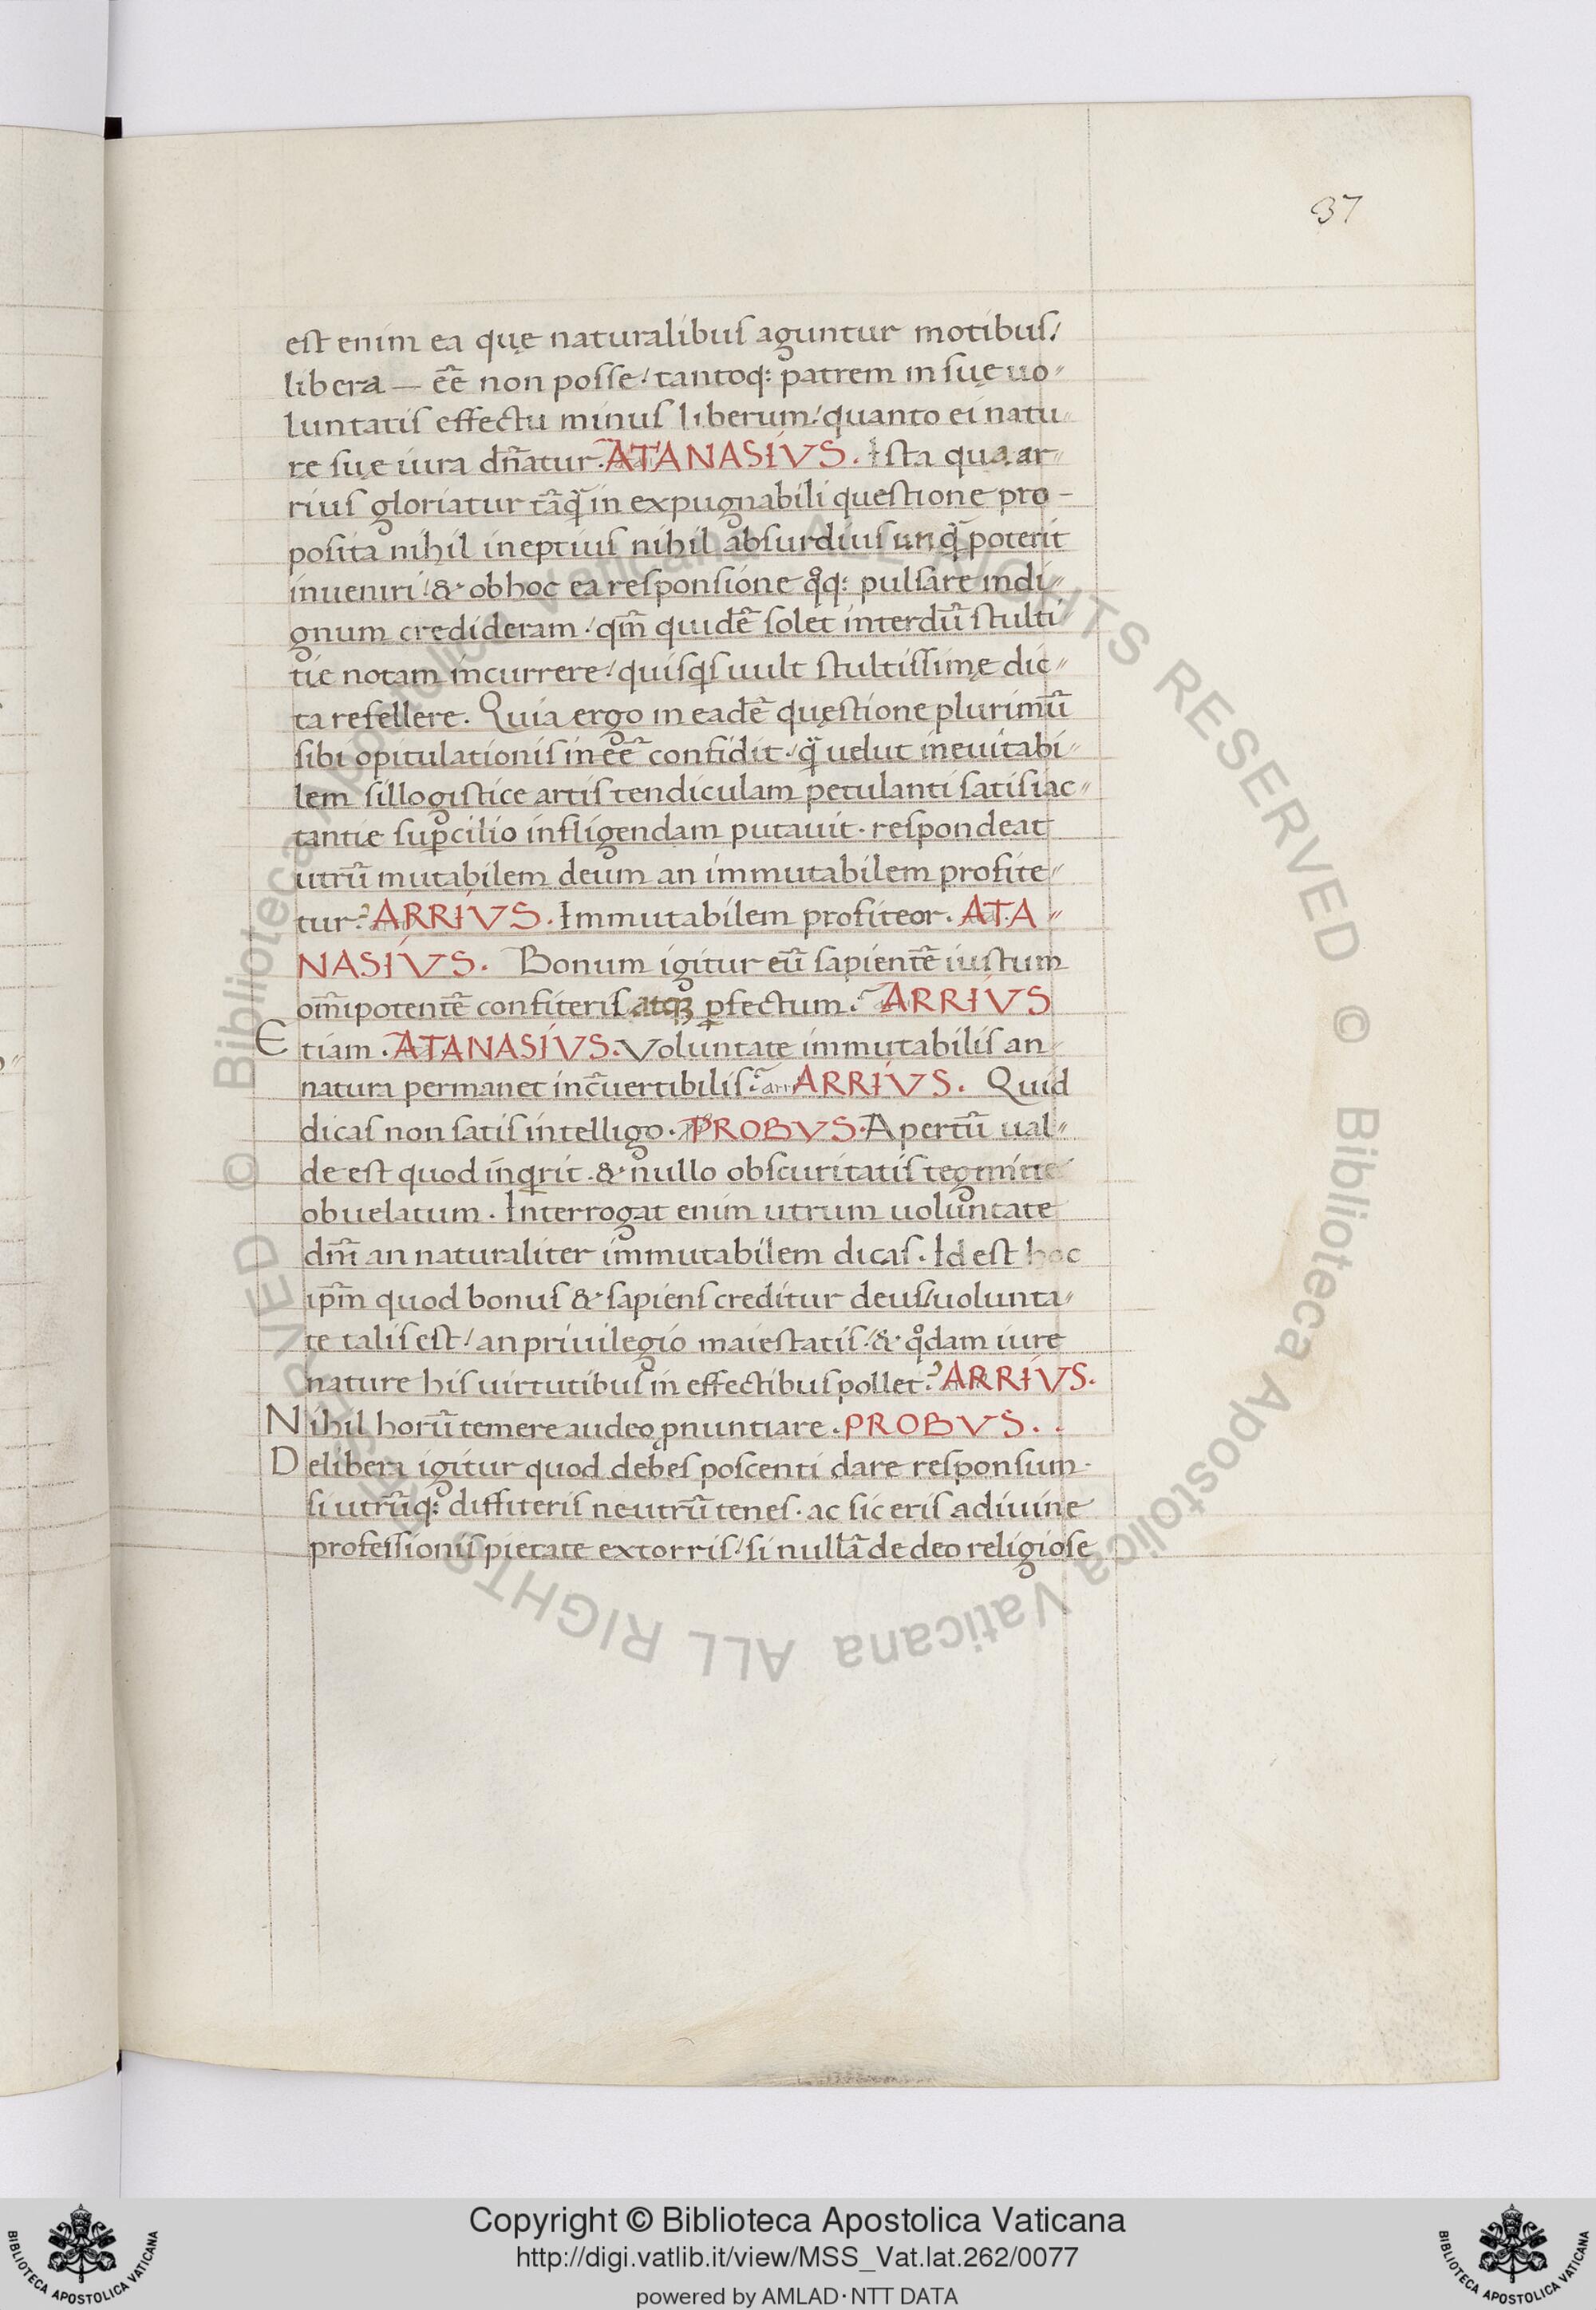 37
est enim ea quę naturalibus aguntur motibus /
libera — eē non posse / tantoq: patrem in suę uo〃
luntatis effectu minus liberum / quanto ei natu〃
re suę iura dn̄atur. ATANASIVS. Ista qua ar〃
rius gloriatur tāq̄ in expugnabili questione pro–
posita nihil ineptius nihil absurdius unq̄ poterit
inueniri / & ob hoc ea responsione qͦq: pulsare indi〃
gnum credideram / qm̄ quidē solet interdū stulti
tie notam incurrere / quisqs uult stultissimę dic〃
ta refellere. Quia ergo in eadē quęstione plurimū
sibi opitulationis in eē confidit / qᵃ velut ineuitabi〃
lem sillogistice artis tendiculam petulanti satis iac〃
tantię suꝑcilio infligendam putauit. respondeat
utrū mutabilem deum an immutabilem profite〃
tur? ARRIVS. Immutabilem profiteor. ATA〃
NASIVS. Bonum igitur eū sapientē iustum
om̄ipotentē confiteris atqꝫ ꝑfectum? ARRIVS
Etiam. ATANASIVS. Voluntate immutabilis an
natura permanet incōuertibilis? arri ARRIVS. Quid
dicas non satis intelligo. PROBVS. Apertū ual〃
de est quod inqrit. & nullo obscuritatis tegmine
obuelatum. Interrogat enim utrum uoluntate
dm̄ an naturaliter immutabilem dicas. Id est hoc
ip̄m quod bonus & sapiens creditur deus / uolunta〃
te talis est / an priuilegio maiestatis / & qͦdam iure
nature his uirtutibus in effectibus pollet? ARRIVS.
Nihil horū temere audeo ꝓnuntiare. PROBVS..
Delibera igitur quod debes poscenti dare responsum.
si utrūq: diffiteris neutrū tenes. ac sic eris a diuine
professionis pietate extorris / si nullā de deo religiose
© Biblioteca Apostolica Vaticana ALL RIGHTS RESERVED © Biblioteca Apostolica Vaticana ALL RIGHTS RESERVED
Copyright © Biblioteca Apostolica Vaticana
http://digi.vatlib.it/view/MSS_Vat.lat.262/0077
powered by AMLAD·NTT DATA
BIBLIOTECA APOSTOLICA VATICANA
BIBLIOTECA APOSTOLICA VATICANA